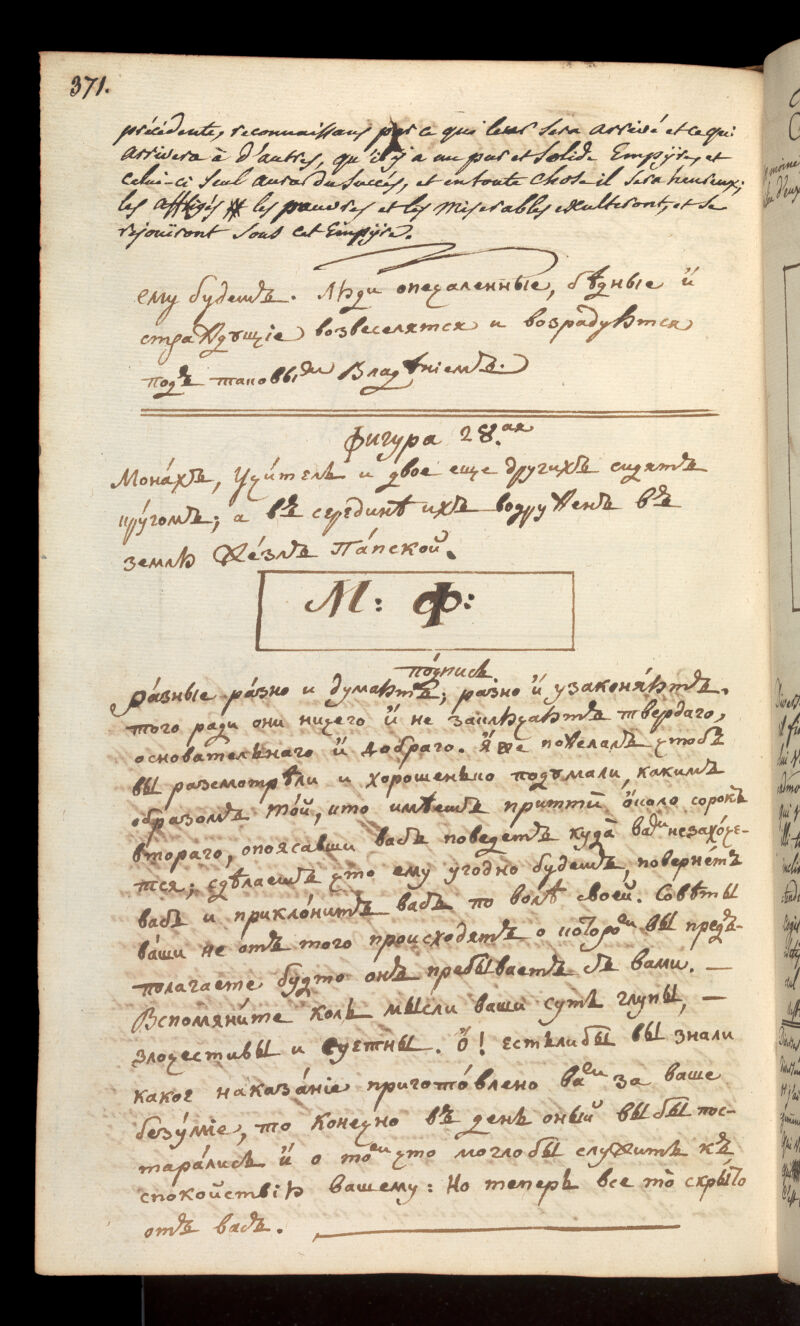 371.
précédente, reconnaissans par ce qui leur sera arrivé et ce qui
arrivera à d'autres, qu'il y a un pur et solide Empÿre, et
celui-ci seul aura du succés, et en toute chose il sera heureux;
les affligés les pauvres et les miserables exulteront, et se
rejouiront sous cet Empÿre.
ему будетъ. Люди опечаленные, бѣдные й
страждущіе возвеселятся и возрадуются
подъ таковымъ Владѣніемъ.
Фигура 28.ая
Монáхъ, Учи́тель и двое еще другихъ сидятъ
кру́гомъ; а въ серединѣ ихъ водруженъ въ
землю Же́злъ Пáпской.
М: Ф:
подпись
Рáзные рáзно и думаютъ; рáзно й узаконя́ютъ.
того ради они ничего й не заключаютъ твердаго,
основательнаго й добраго. Я же пожелалъ чтобъ
вы разсмотрѣли и хорошенько подумали, какимъ
образомъ то́й, что имѣетъ притти о́коло сорокъ
втораго, опоясавши васъ поведетъ куда̀ вамъ незахо́че-
тся; сдѣлаетъ что ему угодно будетъ, поверне́тъ
васъ и прикло́нитъ васъ по волѣ своей. Совѣты
вáши не отъ того происходятъ о которомъ вы предъ-
полагаете будто онъ пребываетъ съ вами. —
Вспомяни́те коль мысли ваши суть глупы, —
злочестивы и суетны. О! Естьлибы вы знали
какое наказáніе пригото́влено вамъ за ваше
безу́міе, то Конечно въ день оный вы бы пос-
тарáлись й о томъ что моглобы служить къ
спокойствію вашему: Но теперь все то̀ скры́то
отъ васъ.